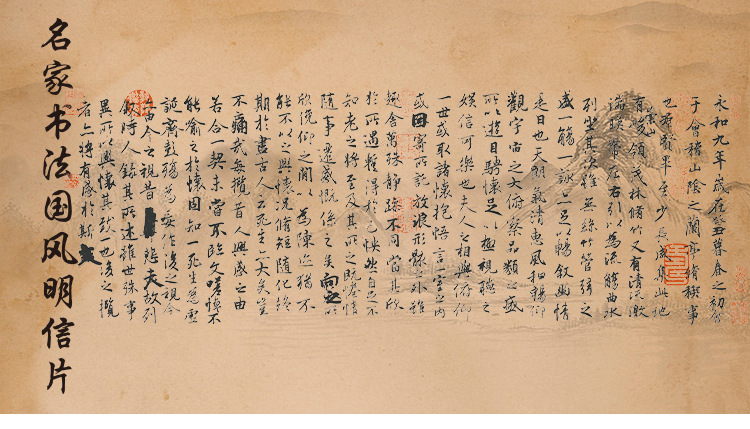 永和九年歲在癸丑暮春之初會
于會稽山陰之蘭亭脩禊事
也群賢畢至少長咸集此地
有崇山峻領茂林脩竹又有清流激
湍暎帶左右引以為流觴曲水
列坐其次雖無絲竹管弦之
盛一觴一詠亦足以暢敘幽情
是日也天朗氣清惠風和暢仰
觀宇宙之大俯察品類之盛
所以遊目騁懷足以極視聽之
娛信可樂也夫人之相與俯仰
一世或取諸懷抱悟言一室之內
或因寄所託放浪形骸之外雖
趣舍萬殊靜躁不同當其欣
於所遇暫得於己怏然自足不
知老之將至及其所之既惓情
隨事遷感慨係之矣向之所
欣俛仰之間以為陳迹猶不
能不以之興懷況脩短隨化終
期於盡古人云死生亦大矣豈
不痛哉每攬昔人興感之由
若合一契未嘗不臨文嗟悼不
能喻之於懷固知一死生為虛
誕齊彭殤為妄作後之視今
亦由今之視昔悲夫故列
敘時人錄其所述雖世殊事
異所以興懷其致一也後之攬
者亦將有感於斯文
名家书法国风明信片